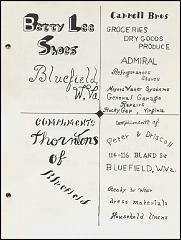 Betty Lee
Shoes
Bluefield
W.Va.
Carroll Bros
GROCERIES
DRY GOODS
PRODUCE
ADMIRAL
Refrigerators
Stoves
Myers Water Systems
General Garage
Repairs
Rocky Gap, Virginia
COMPLIMENTS
Thorntons
of
Bluefield
Compliments of
Peter & Driscoll
114-116 BLAND St
BLUEFIELD, W.Va.
Ready to Wear
dress materials
Household linens